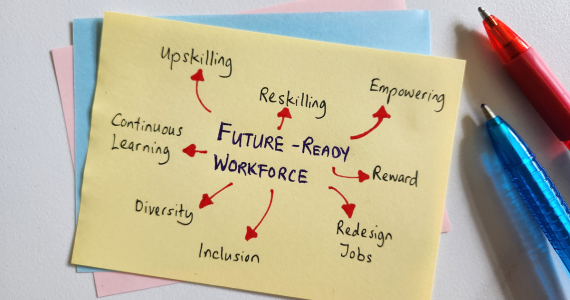 Upskilling
Reskilling
Empowering
Continuous
Learning
FUTURE-READY
WORKFORCE
Reward
Diversity
Inclusion
Redesign
Jobs